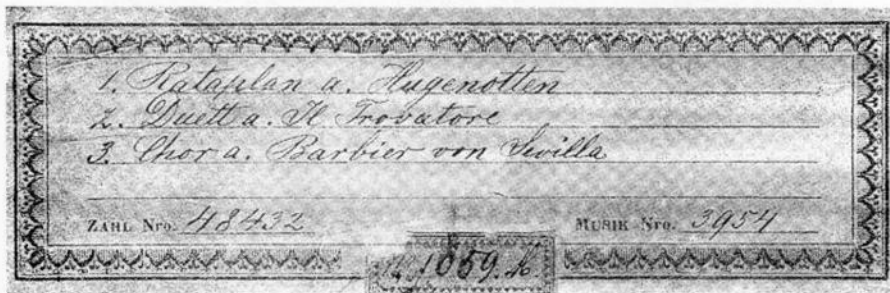 1. Rataplan a. Hugenotten
2. Duett a. Il Trovatore
3. Chor a. Barbier von Sevilla
ZAHL Nro. 48432 MUSIK Nro. 3954
1059.